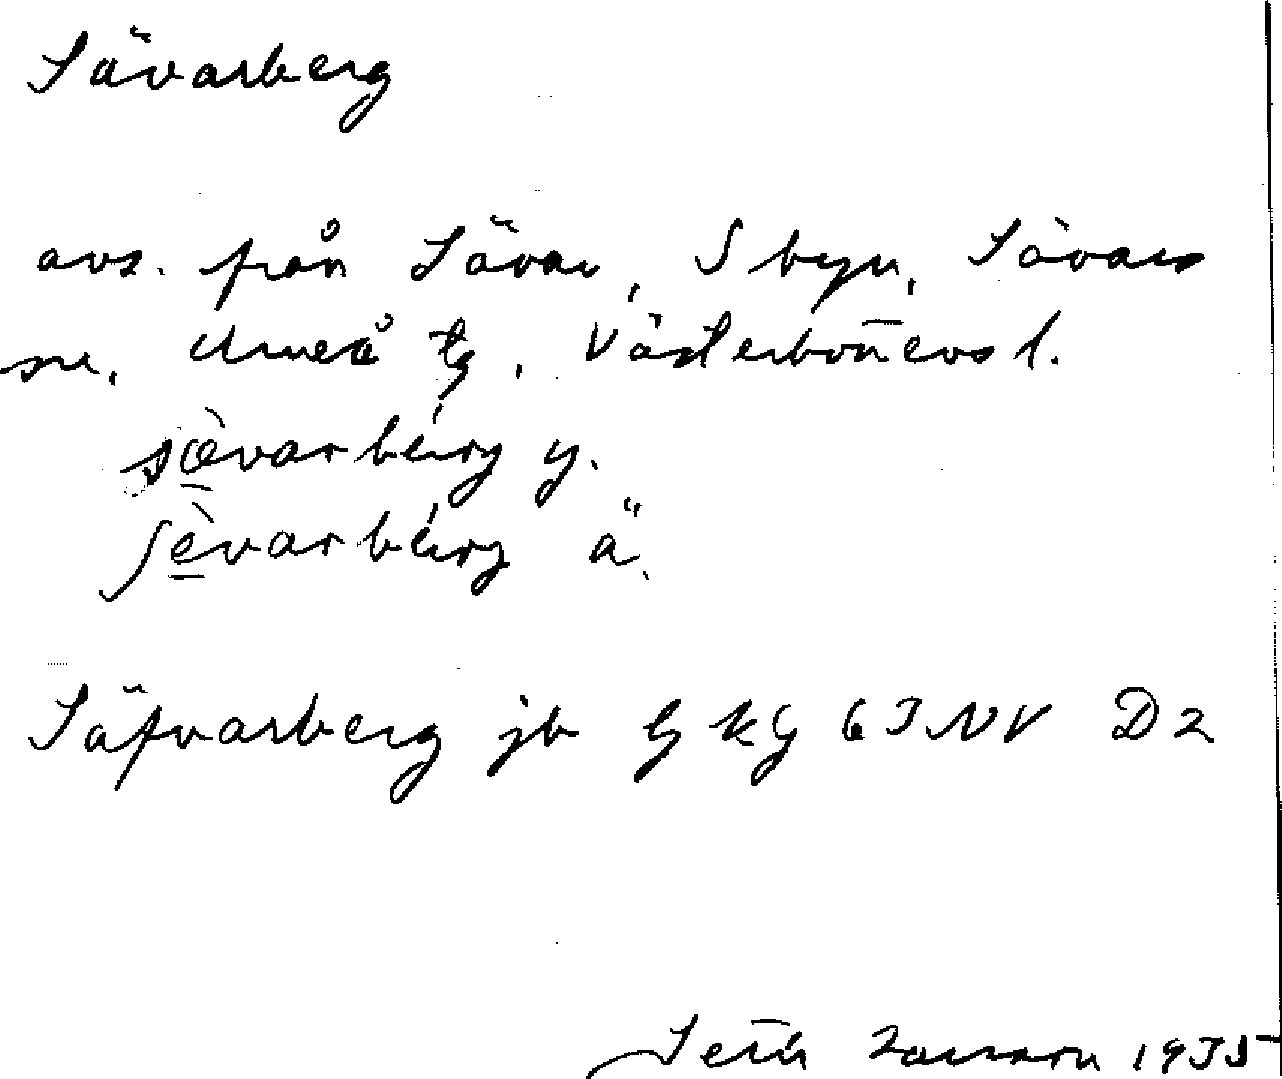 Sävarberg
avs. från Sävar, S byn, Sävars
sn, Umeå tg, Västerbottens l.
sæ̀varbérg y.
ʃèvarbérg ä.
Säfvarberg jb GKG 63 NV D2
Seth Larsson 1935